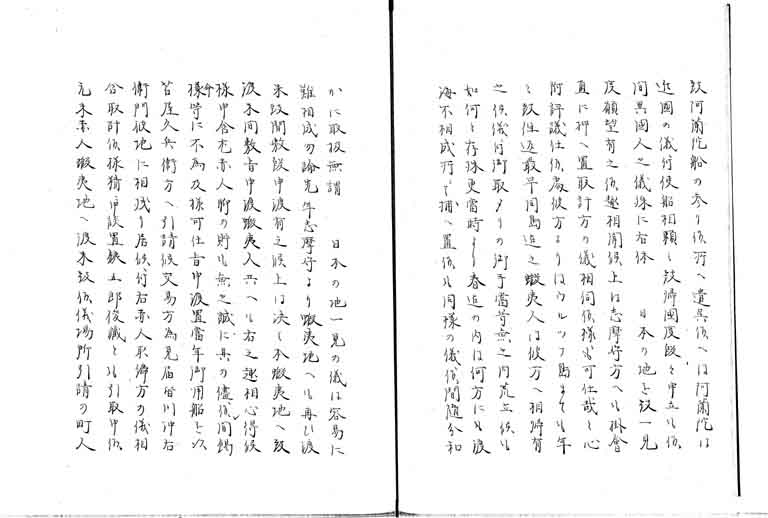 致阿蘭陀船の参り候所へ遣呉候へは阿蘭陀は
近國の儀付使船相願ひ致帰國度段を申立候
間異國人之儀殊に右体　日本の地を致一見
度願望有之候趣相聞候上は志摩守方へも掛會
直に押へ置取計方の儀相伺候様可仕哉と心
附評議仕候處彼方よりはウルツフ島までも年
と致住返最早同島迄之蝦夷人は彼方へ相歸有
之候儀付御取〆りの御手當昔無之内荒立候も
如何と存殊更當時より春迄の内は何方にも渡
海不相成所にて捕へ置候も同様の儀候間随分和
かに取扱無謂　日本の地一見の儀は容易に
難相成の論先年志摩守より蝦夷地へも再び渡
来致間敷段申渡有之候上は決し不蝦夷地へ致
渡来間敷旨申渡蝦夷人共へも右之趣相心得候
様申含尤赤人所の貯も無之誠に其の儘候間錫
様等に不為及様可仕旨申渡置當年御用船を以
苫屋久兵衛方へ引請候交易方為見届皆川沖右
衛門彼地に相残り居候付右赤人取歸方の儀相
含取計候様猶申談置鉄五郎俊蔵とも引取申候
元来赤人蝦夷地へ渡来致候儀場所引請の町人